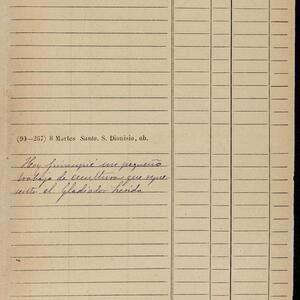 (99—267) 8 Martes Santo. S. Dionisio, ob.
Hoy principié un pequeño
trabajo de escultura que repre
senta el Gladiador herido